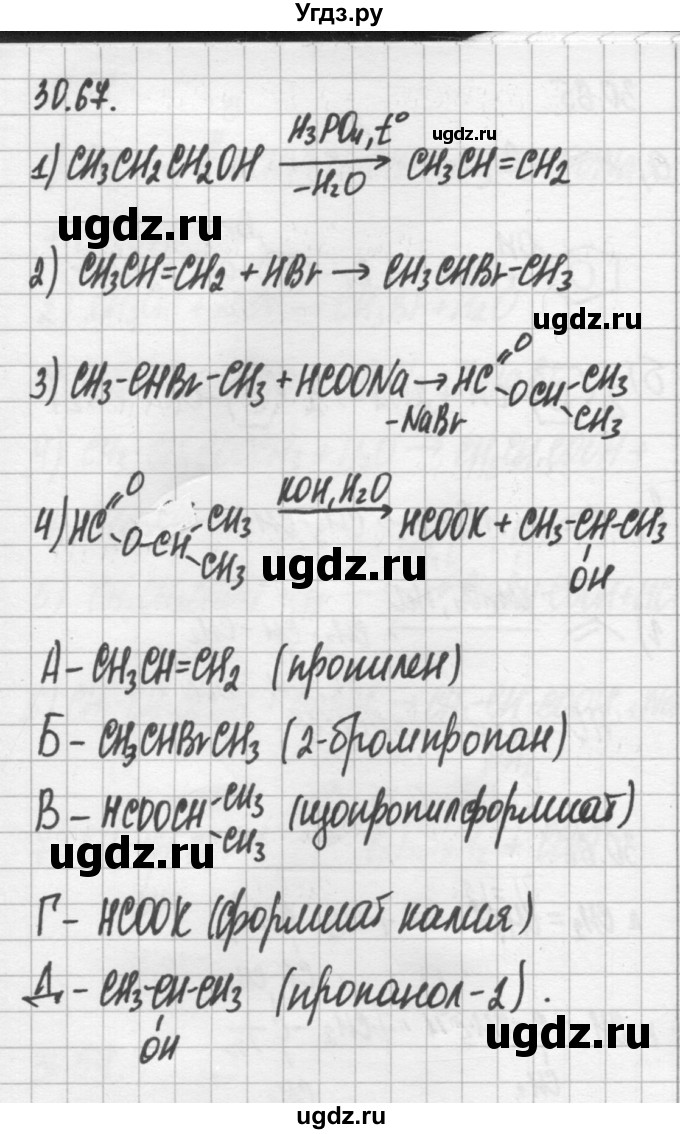 Угдз.ру
30.67.
1) CH3CH2CH2OH H3PO4, t° -H2O → CH3CH=CH2
ugdz.ru
ugdz.ru
2) CH3CH=CH2 + HBr → CH3CHBr-CH3
ugdz.ru
3) CH3-CHBr-CH3 + HCOONa → -NaBr HC=O -OCH-CH3 CH3
4) HC=O -O-CH-CH3 CH3 KOH, H2O → HCOOK + CH3-CH-CH3
OH
ugdz.ru
А - CH3CH=CH2 (пропилен)
Б - CH3CHBrCH3 (2-бромпропан)
В - HCOOCH-CH3 CH3 (изопропилформиат)
ugdz.ru
Г - HCOOK (формиат калия)
Д - CH3-CH-CH3 (пропанол-2).
OH
ugdz.ru
ugdz.ru